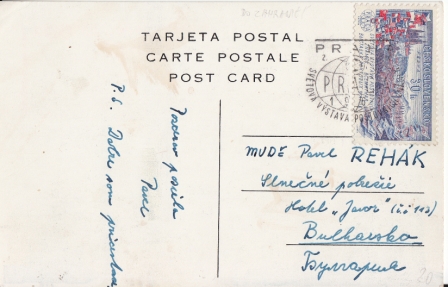 DO ZAHRANIČ
TARJETA POSTAL
CARTE POSTALE
POST CARD
PR
SVĚTOVÁ VÝSTAVA PO
ČESKOSLOVENSKO
30 h
Pozdrav posiela
Pavel
P.S. Dobre som pricestoval
MUDr Pavel REHÁK
Slnečné pobrežie
Hotel „Javor" (č.i 113)
Bulharsko
България